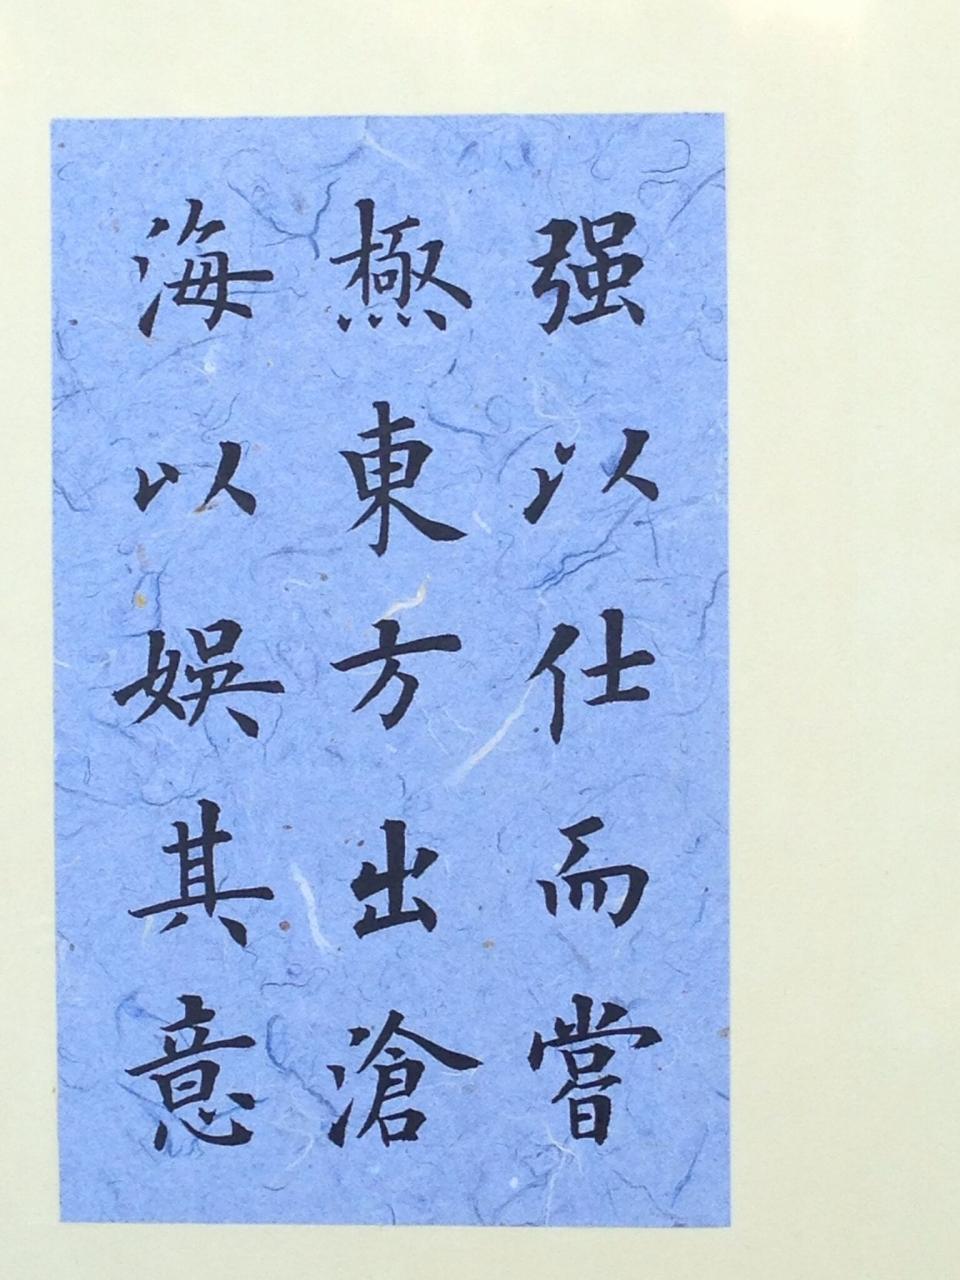 强以仕而嘗
極東方出滄
海以娛其意